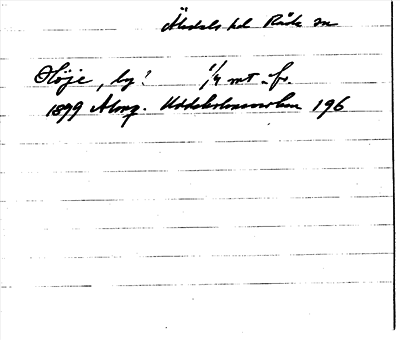 Älvdals hd Råda sn
Höje, by! 1/4 mt. fr.
1899 Almq. Uddeholmsverken 196